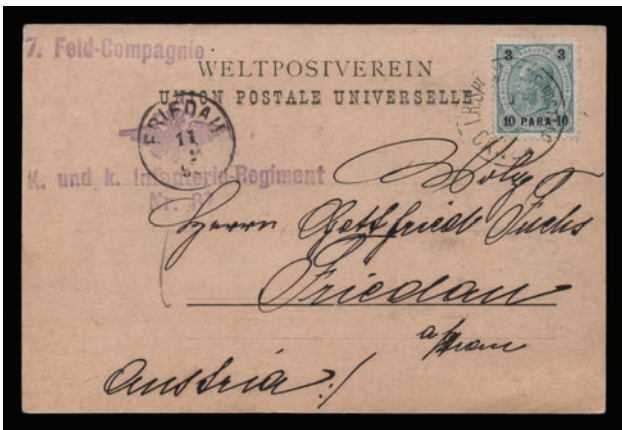 7. Feld-Compagnie
WELTPOSTVEREIN
UNION POSTALE UNIVERSELLE
3 3
10 PARA 10
FRIEDAU
11
K. und k. Infanterie-Regiment
Nr. 87
Herrn Gottfried Fuchs
Friedau
Austria